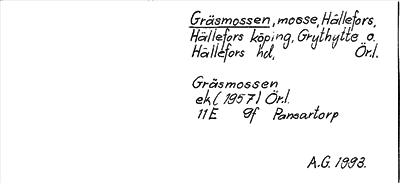 Gräsmossen, mosse, Hällefors,
Hällefors köping, Grythytte o.
Hällefors hd, Ör.l.
Gräsmossen
ek (1957) Ör.l.
11E 9f Pansartorp
A.G. 1993.